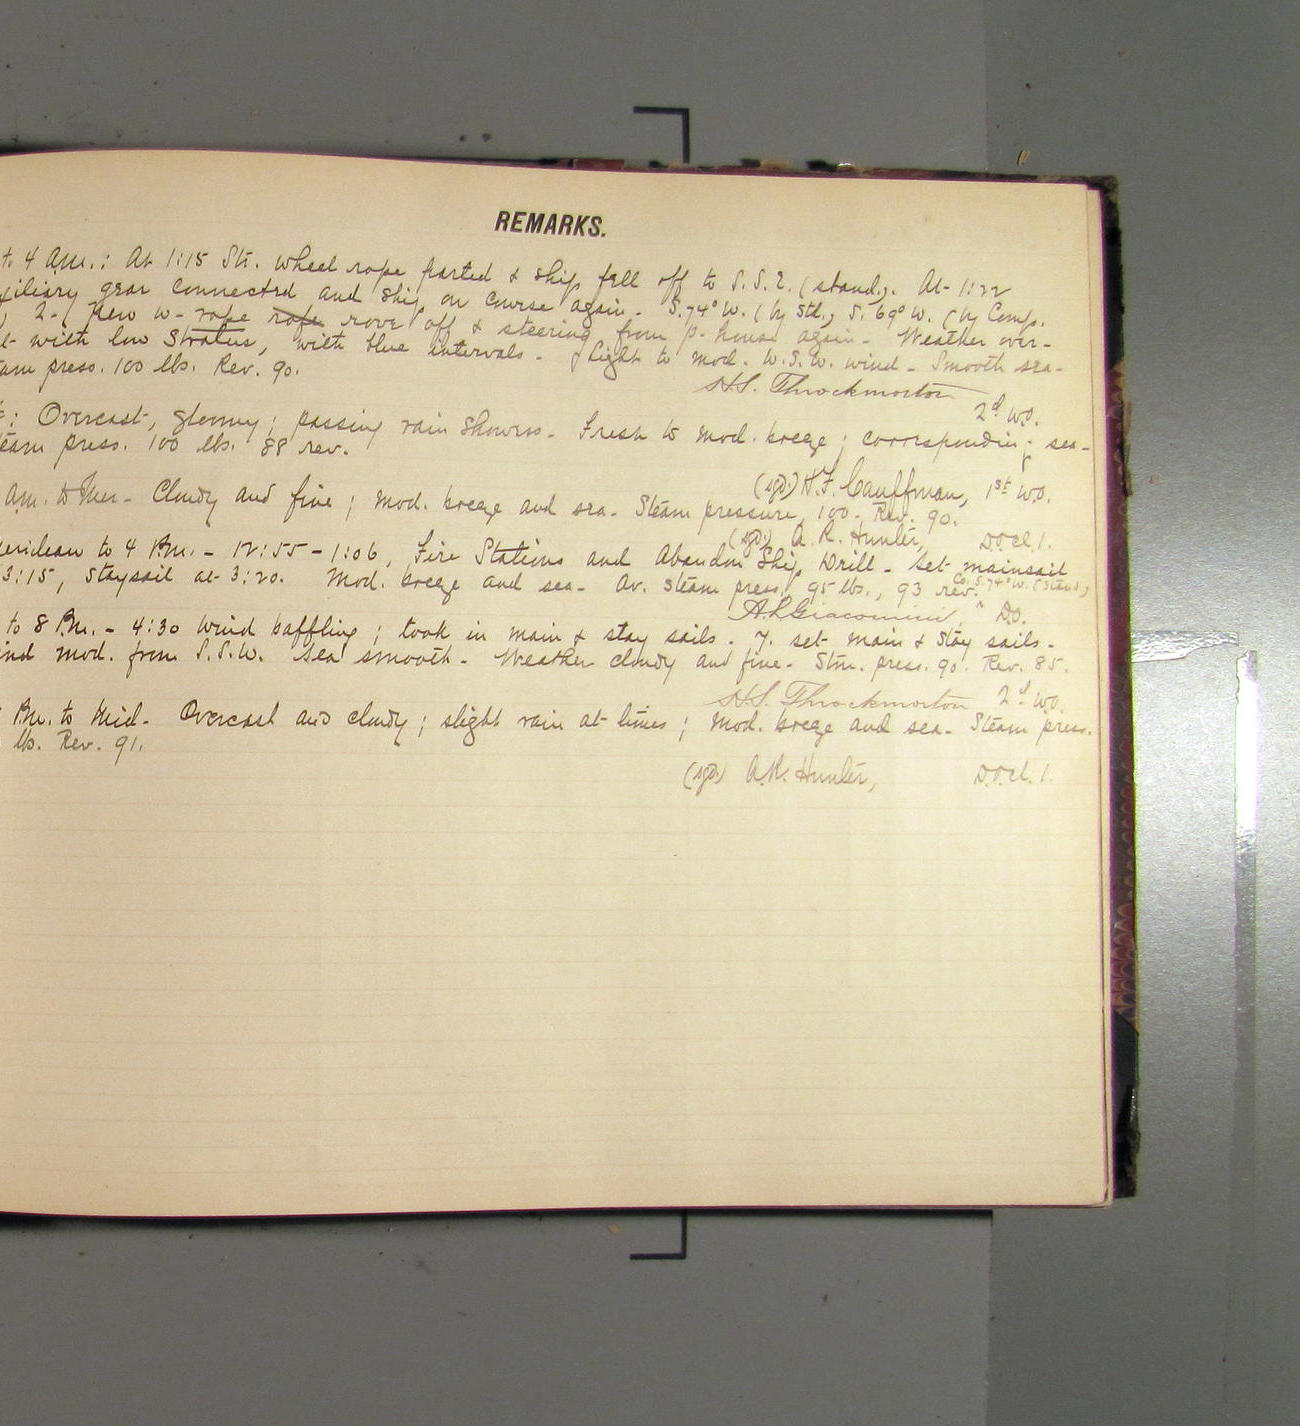 REMARKS.
to 4 Am.: At 1:15 Str. wheel rope parted & ship fell off to S.S.E. (stand). At 1:22
xiliary gear connected and ship on course again. S. 74° W. (by Std.) S. 69° W. (by Comp.
2- New w- rope rope rove off & steering from p- house again. Weather over-
with low Stratus, with blue intervals. Light to mod. W.S.W. wind. Smooth sea.
eam press. 100 lbs. Rev. 90.
H.S. Throckmorton
2d W.O.
: Overcast, gloomy; passing rain showers. Fresh to mod. breeze; corresponding sea.
eam press. 100 lbs. 88 rev.
(sgd) H.F. Cauffman, 1st W.O.
Am. to Mer. Cloudy and fine; mod. breeze and sea. Steam pressure, 100; Rev. 90.
(sgd) A. R. Hunter, D.O. cl. 1.
eridean to 4 Pm. - 12:55 - 1:06, Fire Stations and Abandon Ship Drill. Set mainsail
3:15, staysail at 3:20. Mod. breeze and sea. Av. steam press. 95 lbs., 93 rev. Co. S. 74° W. (Stand)
A. L. Giacomini, D.O.
to 8 Pm. - 4:30 Wind baffling; took in main & stay sails. 7. set main & stay sails.
ind mod. from S.S.W. Sea smooth. Weather cloudy and fine. Stm. press. 90. Rev. 85.
H.S. Throckmorton 2d W.O.
Pm. to Mid. Overcast and cloudy; slight rain at times; mod. breeze and sea. Steam press.
lbs. Rev. 91.
(sgd) A.R. Hunter, D.O. cl. 1.